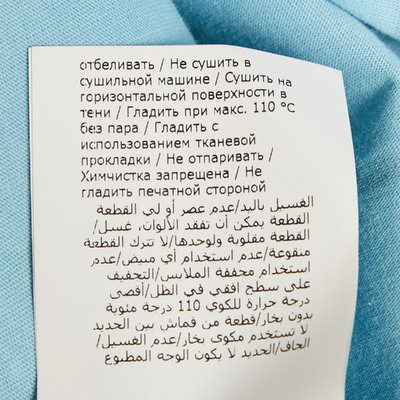 отбеливать / Не сушить в
сушильной машине / Сушить на
горизонтальной поверхности в
тени / Гладить при макс. 110 °C
без пара / Гладить с
использованием тканевой
прокладки / Не отпаривать /
Химчистка запрещена / Не
гладить печатной стороной
الغسيل باليد/عدم عصر أو لي القطعة
القطعة يمكن أن تفقد الألوان، غسل/
القطعة مقلوبة ولوحدها/لا تترك القطعة
منقوعة/عدم استخدام أي مبيض/عدم
استخدام مجففة الملابس/التجفيف
على سطح افقي في الظل/أقصى
درجة حرارة للكوي 110 درجة مئوية
بدون بخار/قطعة من قماش بين الحديد
لا تستخدم مكوى بخار/عدم الغسيل/
الجاف/الحديد لا يكون الوجه المطبوع